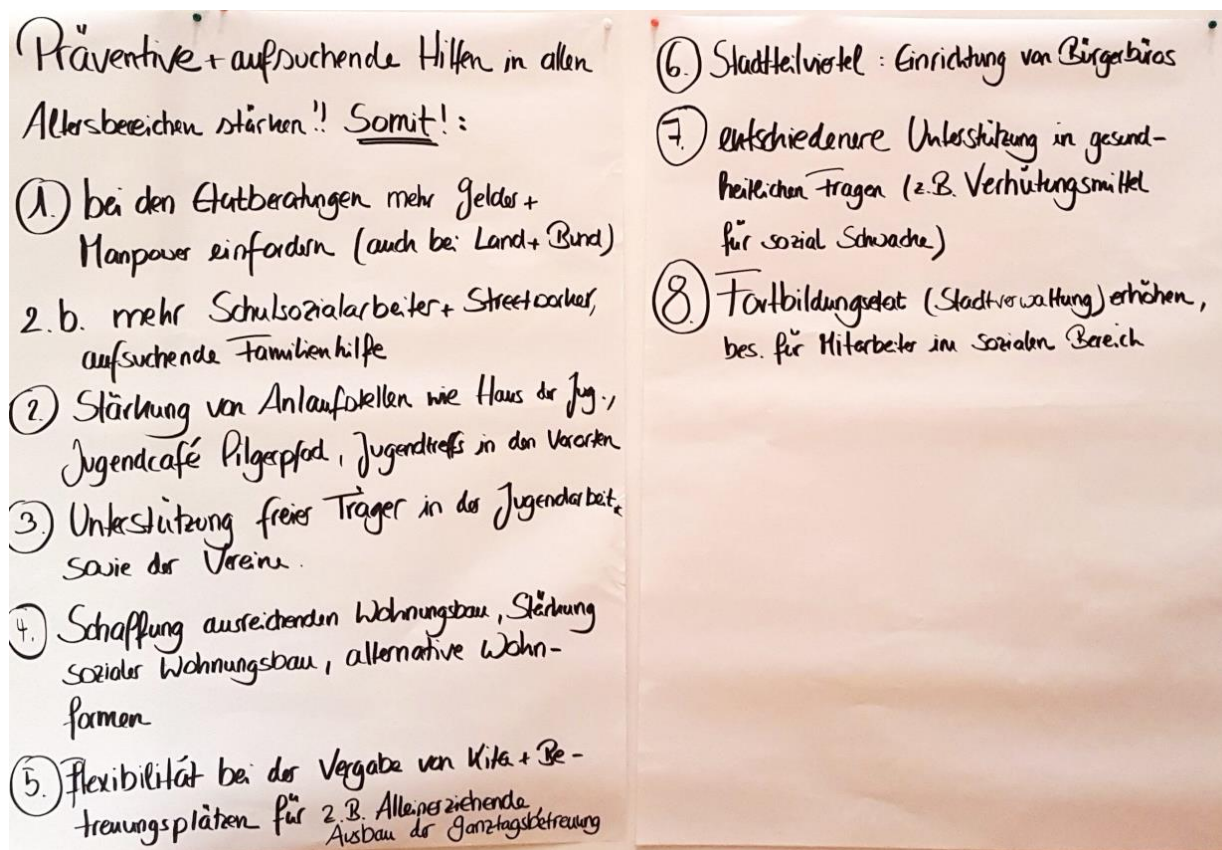 Präventive + aufsuchende Hilfen in allen
Altersbereichen stärken!! Somit!:
1. bei den Etatberatungen mehr Gelder +
Manpower einfordern (auch bei Land + Bund)
z.b. mehr Schulsozialarbeiter + Streetworker,
aufsuchende Familienhilfe
2. Stärkung von Anlaufstellen wie Haus der Jug.,
Jugendcafé Pilgerpfad, Jugendtreffs in den Vororten
3. Unterstützung freier Träger in der Jugendarbeit
sowie der Vereine.
4. Schaffung ausreichenden Wohnungsbau, Stärkung
sozialer Wohnungsbau, alternative Wohn-
formen
5. Flexibilität bei der Vergabe von Kita + Be-
treuungsplätzen für z.B. Alleinerziehende,
Ausbau der Ganztagsbetreuung
6. Stadtteilviertel: Einrichtung von Bürgerbüros
7. entschiedenere Unterstützung in gesund-
heitlichen Fragen (z.B. Verhütungsmittel
für sozial Schwache)
8. Fortbildungsetat (Stadtverwaltung) erhöhen,
bes. für Mitarbeiter im sozialen Bereich